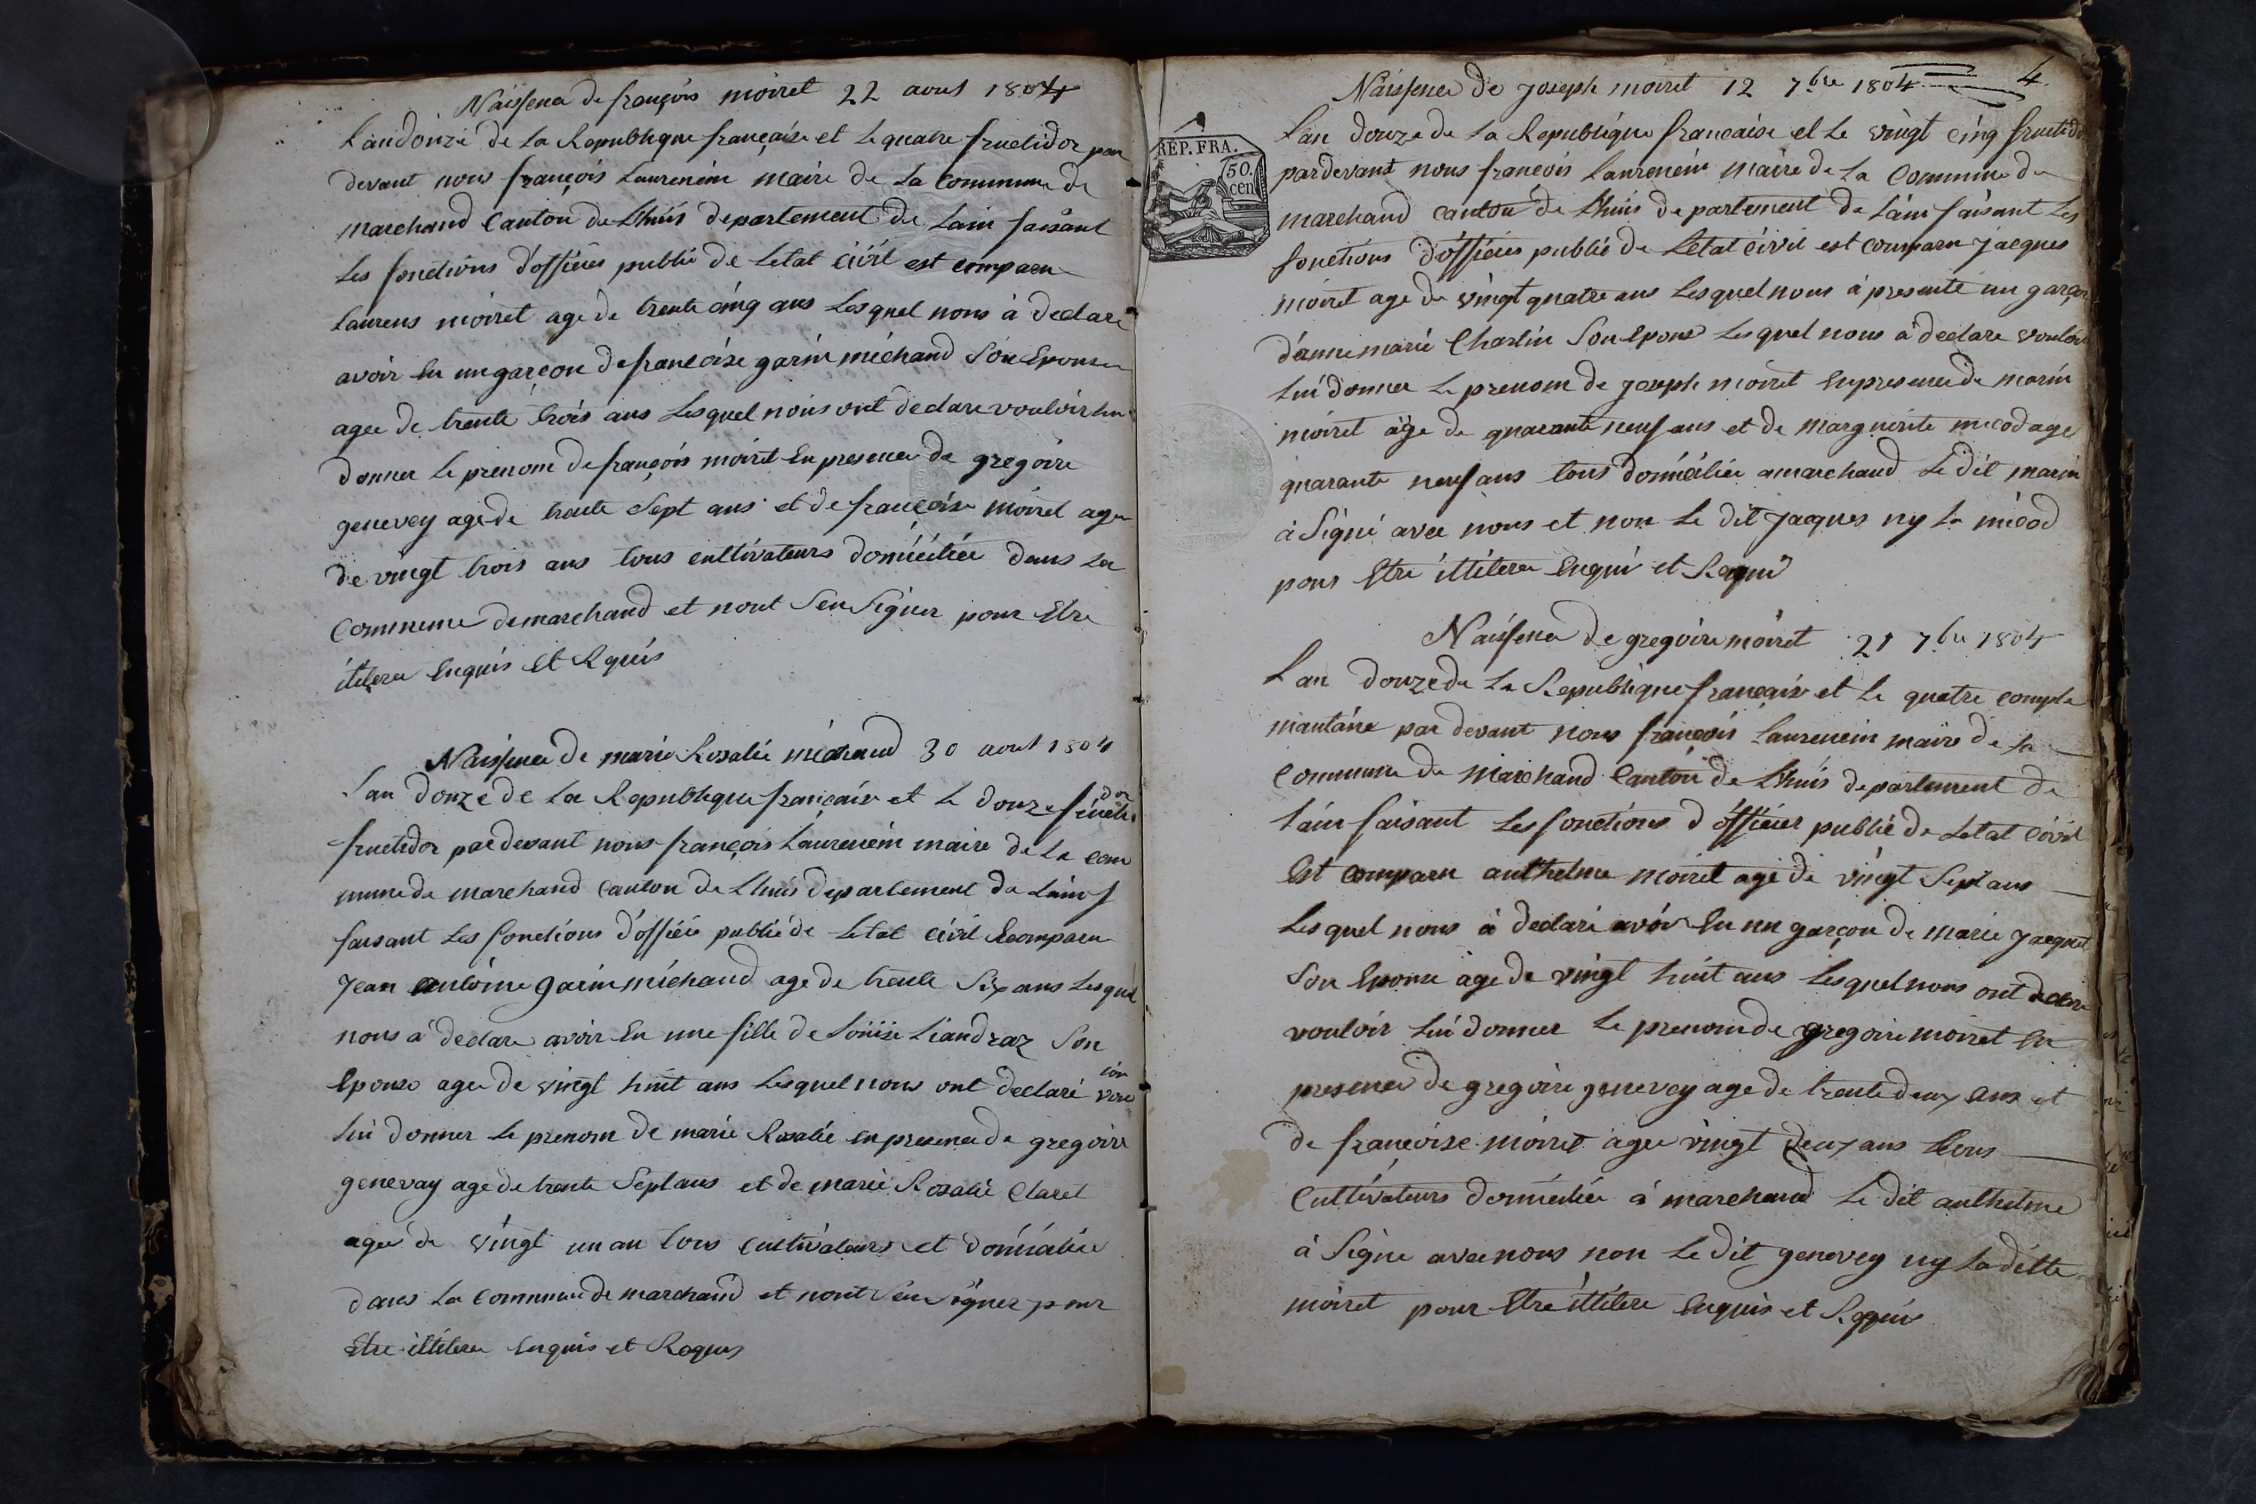 Naissence de françois moiret 22 aout 1804
Lan douze de La Republique française et Le quatre fructidor par
devant nous françois Laurencin maire de La Commune de
marchand Canton de Lhuis departement de Lain faisant
Les fonctions d'officier public de Letat civil est comparu
Laurens moiret age de trente cinq ans Lesquel nous à declare
avoir Eu un garçon de francoise garin michaud Son Epouse
agee de trente trois ans Lesquel nous ont declare vouloir lui
donner Le prenom de françois moiret En presence de gregoire
genevey age de trente Sept ans et de françoise moiret agee
de vingt trois ans tous cultivateurs domicilie dans La
Commune de marchand et nont Seu Signer pour Etre
itilere Enquis et Rquis
Naissence de marie Rosalie michaud 30 aout 1804
Lan douze de La Republique française et Le douze fructi dor
fructidor par devant nous françois Laurencin maire de La com
mune de marchand Canton de Lhuis departement de Lain f
faisant Les fonctions d'officie public de Letat civil Ecomparu
Jean antoine garin michaud age de trente Six ans Lesquel
nous a declare avoir Eu une fille de Louise Liandraz Son
Epouse agee de vingt huit ans Lesquel nous ont declaré vou loir
lui donner Le prenom de marie Rosalie En presence de gregoire
genevay age de trente Sept ans et de marie Rosalie Claret
agee de vingt un an tous Cultivateurs et domicilie
dans La Commune de marchand et nont Seu Signer pour
Etre illitere Enquis et Requis
4
Naissence de Joseph moiret 12 7.bre 1804
REP. FRA.
50.
cen
Lan douze de La Republique francaise et Le vingt cinq fructido
par devant nous francois Laurencin Maire de La Commune de
marchand canton de Lhuis departement de Lain faisant Les
fonctions d'officier public de Letat civil est comparu Jacques
moiret age de vingt quatre ans Lesquel nous a presenté un garçon
d'anne marie Charlin Son Epouse Lesquel nous a declare vouloir
lui donner Le prenom de Joseph moiret En presence de marin
moiret âge de quarante neuf ans et de marguerite micod age
quarante neuf ans tous domicilie a marchand Le dit marin
à Signé avec nous et non Le dit Jacques ny La micod
pour Etre ittilere Enqui et Requi
Naissence de gregoire moiret 21 7.bre 1804
Lan douze de La Republique française et Le quatre comple
mantaire par devant nous françois Laurencin maire de La
Commune de Marchand Canton de Lhuis departement de
Lain faisant Les fonctions d'officier public de Letat Civil
Est comparu anthelme moiret agé de vingt Sept ans
Lesquel nous à declaré avoir Eu un garçon de marie Jacquet
Son Epouse âge de vingt huit ans Lesquel nous ont declare
vouloir lui donner Le prenom de gregoire moiret En
presence de gregoire genevey age de trente deux ans et
de francoise moiret agee vingt deux ans tous
Cultivateurs domicilie à marchand Le dit anthelme
à Signe avec nous non Le dit genevey ny La ditte
moiret pour Etre ittilere Enquis et Requis